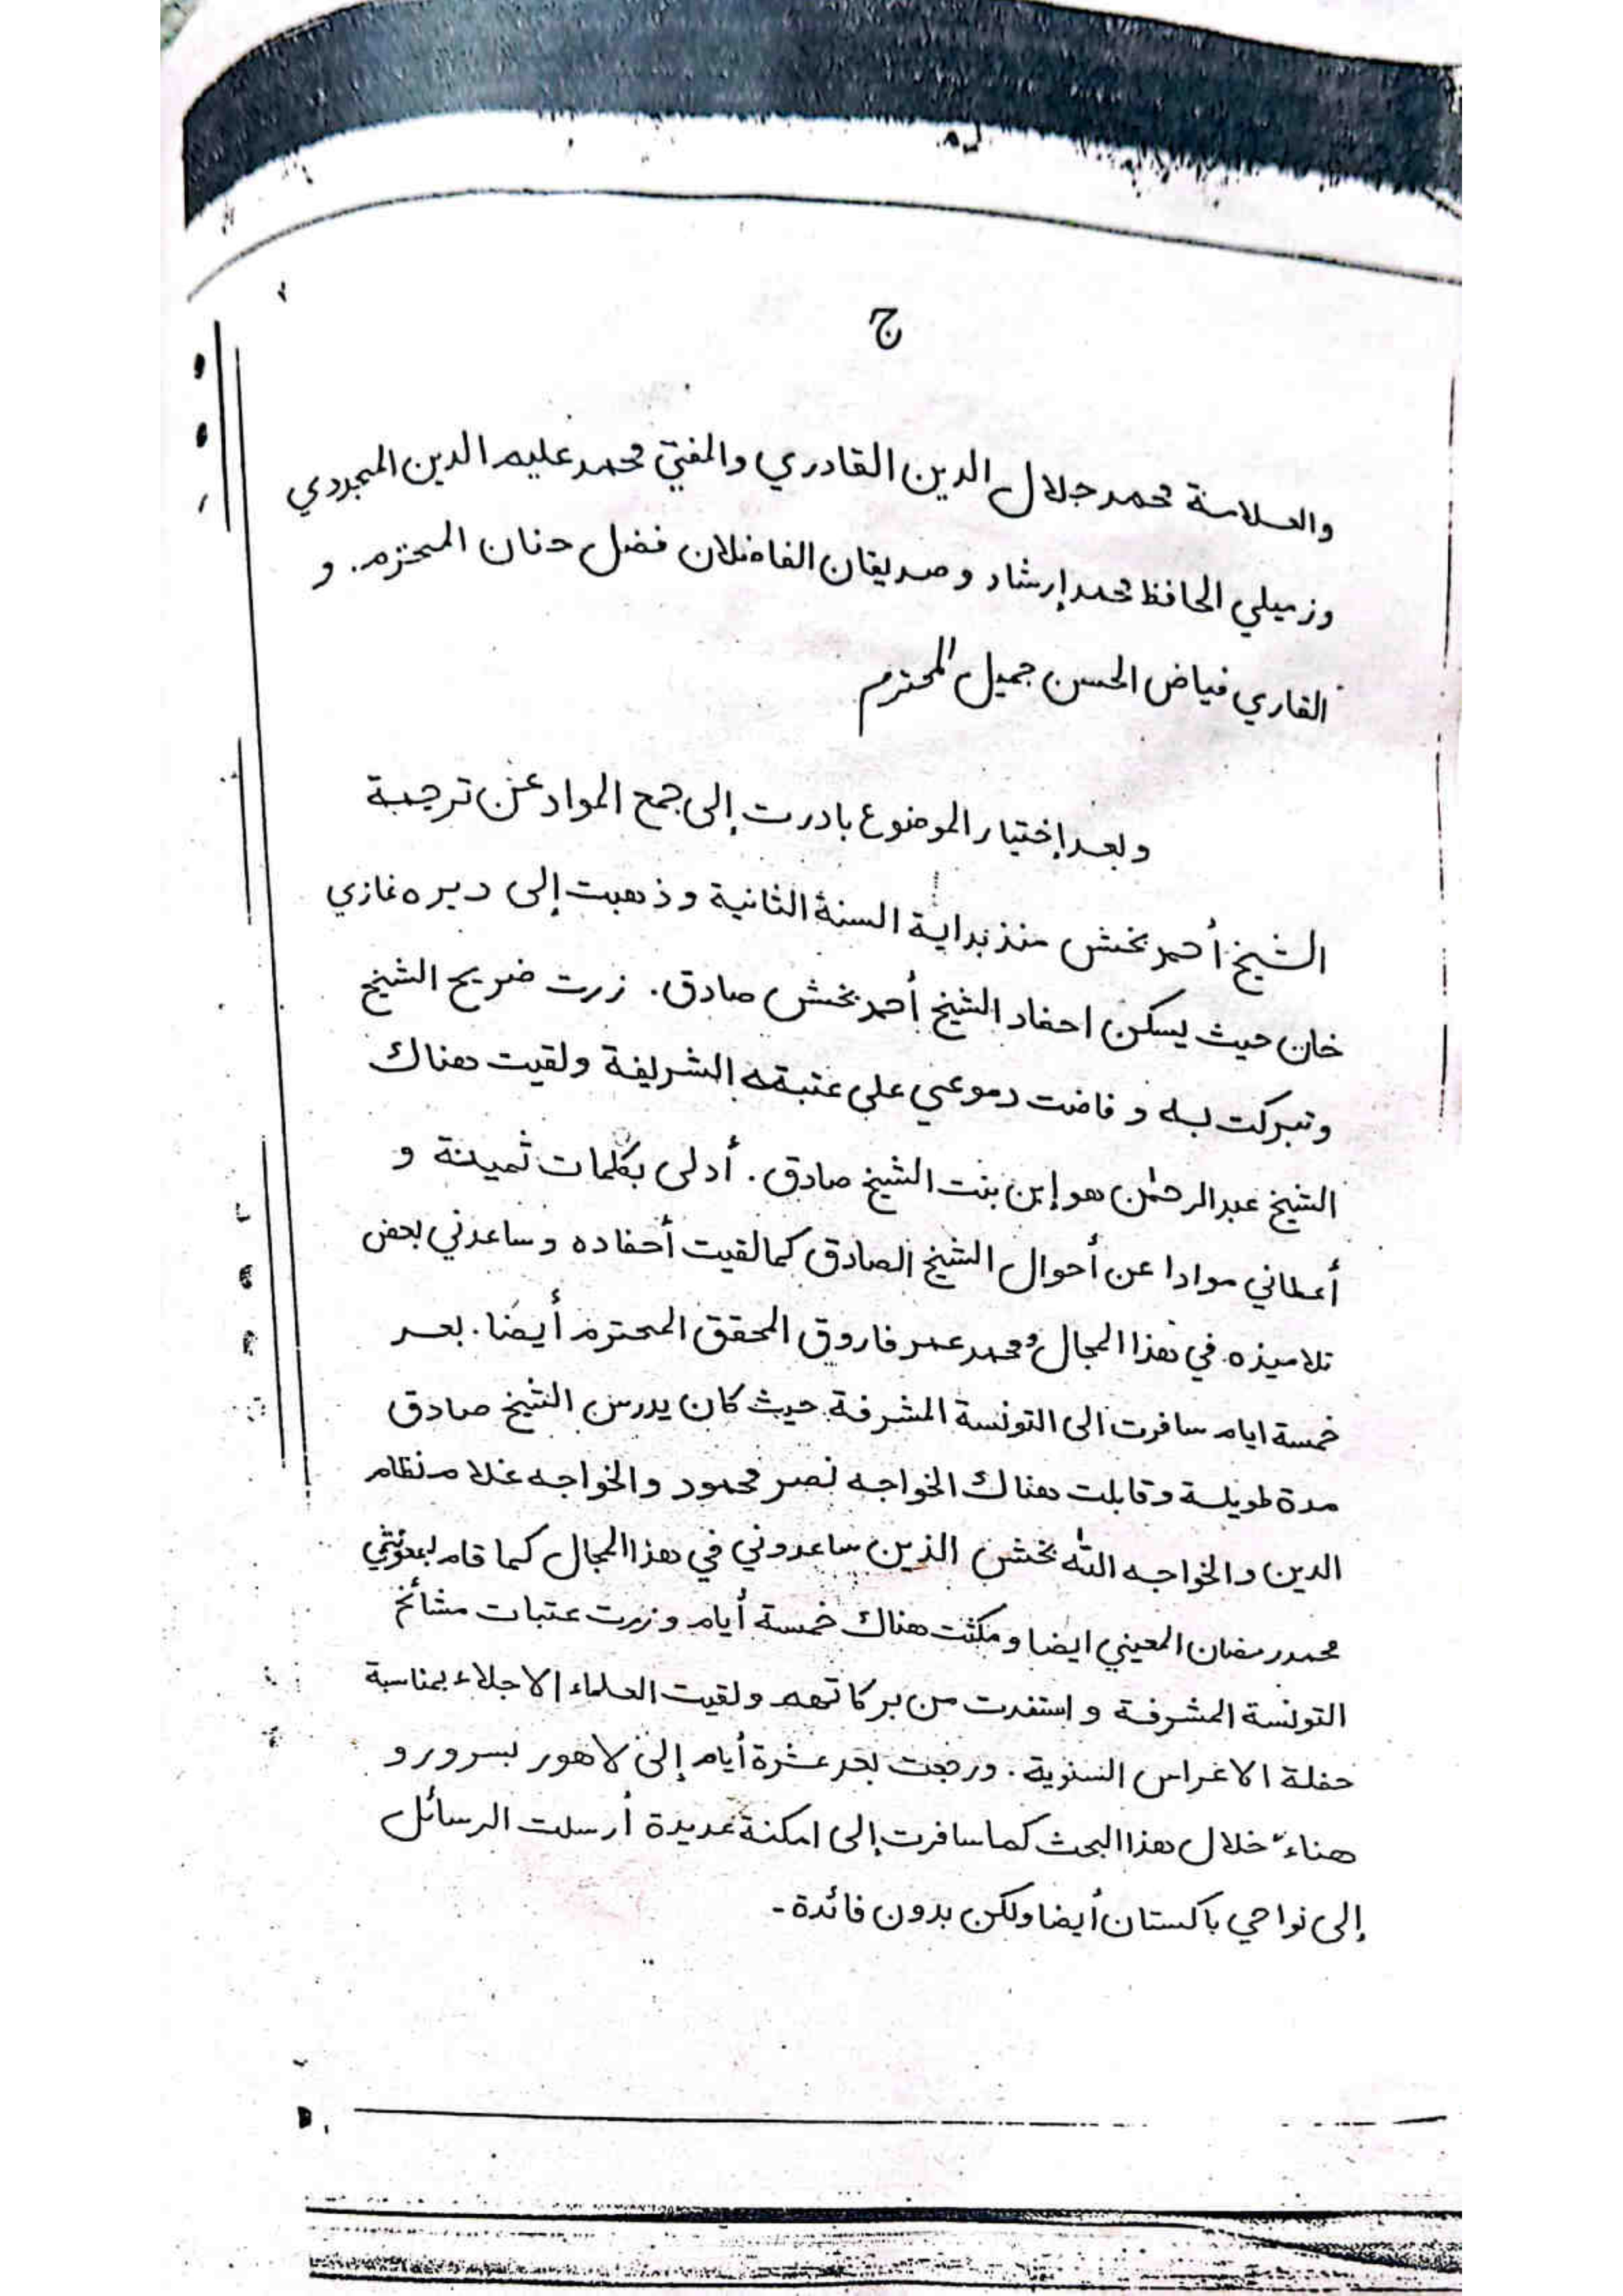 ج
والعلامة محمد جلال الدين القادري والمفتي محمد عليم الدين المجددي
وزميلي الحافظ محمد إرشاد وصديقان الفاضلان فضل حنان المحترم. و
القاري فياض الحسن جميل المحترم
وبعد إختيار الموضوع بادرت إلى جمع المواد عن ترجمة
الشيخ أحمد بخش منذ بداية السنة الثانية وذهبت إلى ديره غازي
خان حيث يسكن احفاد الشيخ أحمد بخش صادق. زرت ضريح الشيخ
وتبركت به و فاضت دموعي على عتبته الشريفة ولقيت هناك
الشيخ عبدالرحمٰن هو إبن بنت الشيخ صادق. أدلى بكلمات ثمينة و
أعطاني موادا عن أحوال الشيخ الصادق كما لقيت أحفاده وساعدني بعض
تلاميذه في هذا المجال ومحمد عمر فاروق المحقق المحترم أيضا. بعد
خمسة ايام سافرت الى التونسة المشرفة حيث كان يدرس الشيخ صادق
مدة طويلة وقابلت هناك الخواجه نصر محمود والخواجه غلام نظام
الدين والخواجه الله بخش الذين ساعدوني في هذا المجال كما قام بمعونتي
محمد رمضان المعيني ايضا ومكثت هناك خمسة أيام وزرت عتبات مشائخ
التونسة المشرفة و استفدت من بركاتهم ولقيت العلماء الاجلاء بمناسبة
حفلة الاغراس السنوية. ورجعت بعد عشرة أيام إلى لاهور بسرور و
هناء خلال هذا البحث كما سافرت إلى امكنة عديدة أرسلت الرسائل
إلى نواحي باكستان أيضا ولكن بدون فائدة-